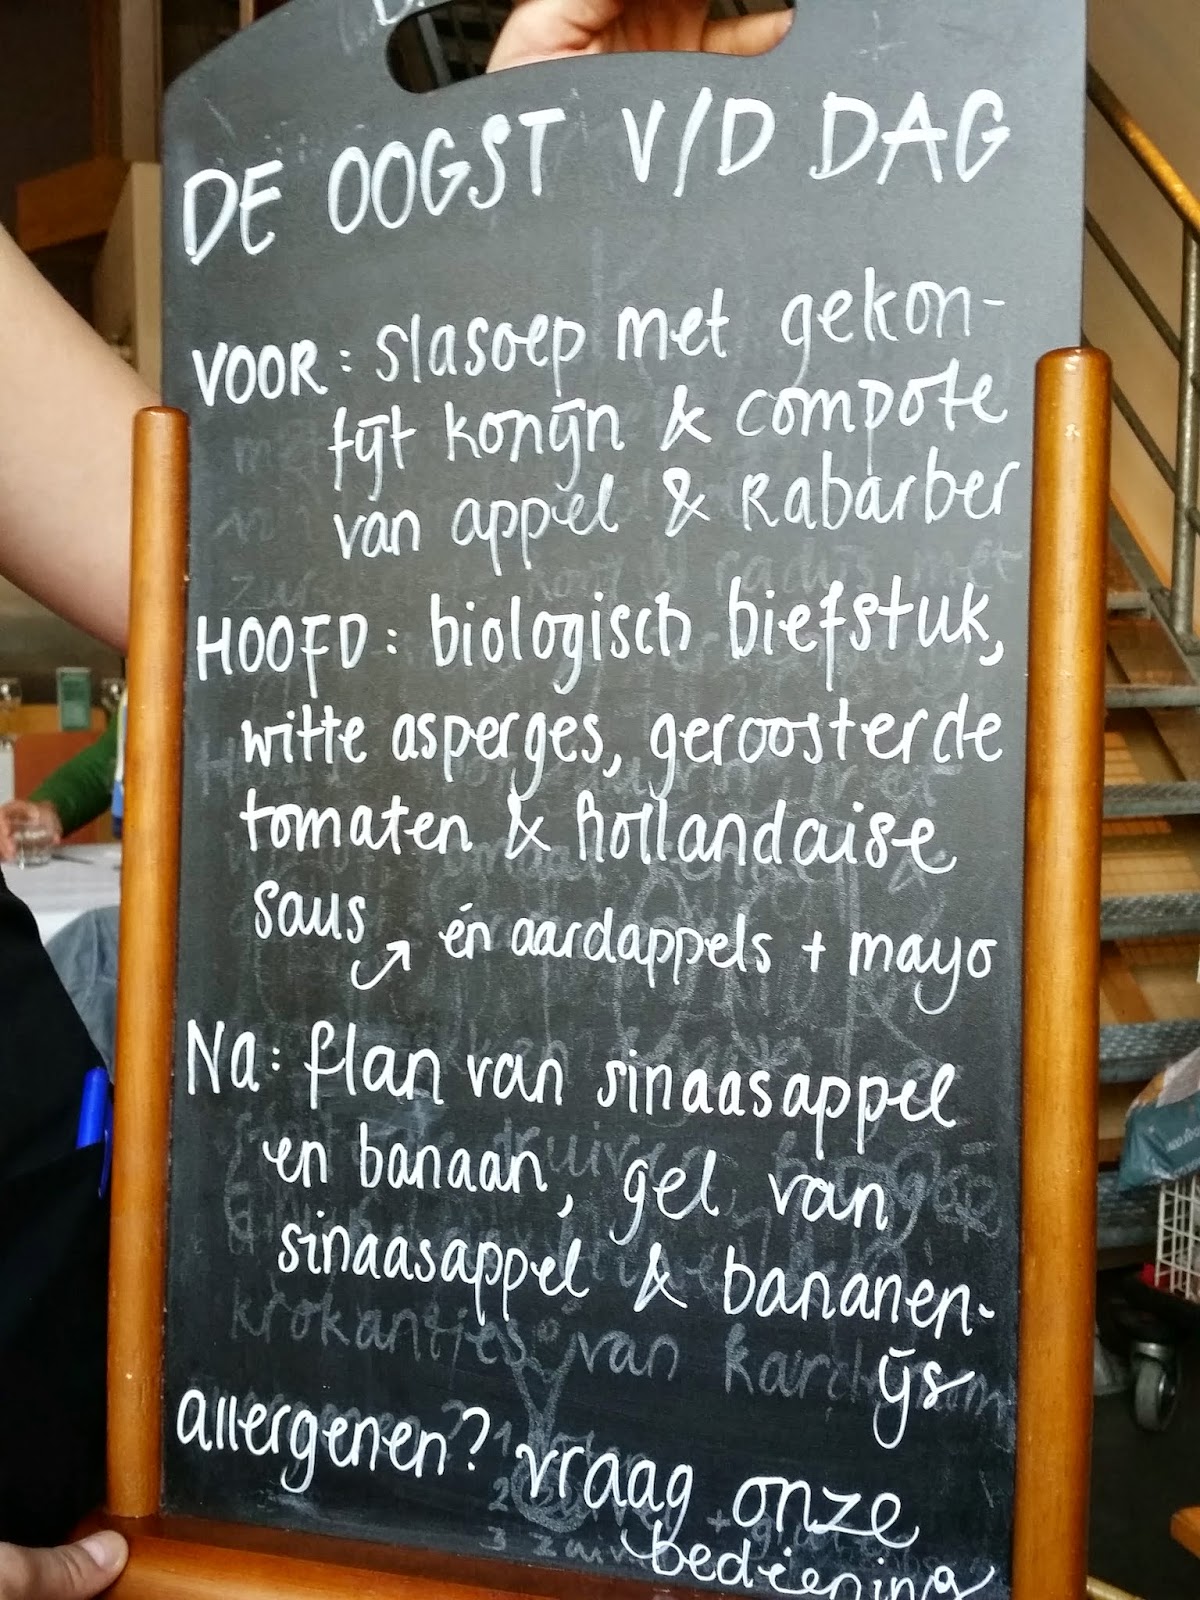 DE OOGST V/D DAG
VOOR: slasoep met gekon-
fijt konijn & compote
van appel & Rabarber
HOOFD: biologisch biefstuk,
witte asperges, geroosterde
tomaten & hollandaise
saus
én aardappels + mayo
Na: flan van sinaasappel
en banaan, gel van
sinaasappel & bananen-
ijs
krokantjes van
allergenen? vraag onze
bediening